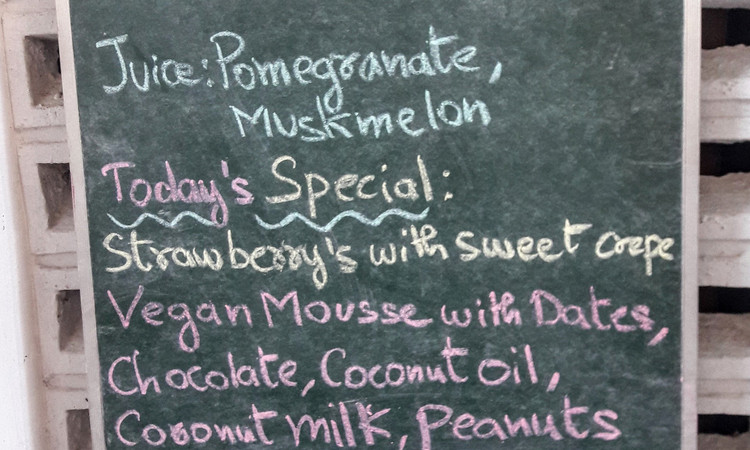 Juice: Pomegranate,
Muskmelon
Today's Special:
Strawberry's with sweet crepe
Vegan Mousse with Dates,
Chocolate, Coconut oil,
Coconut milk, Peanuts